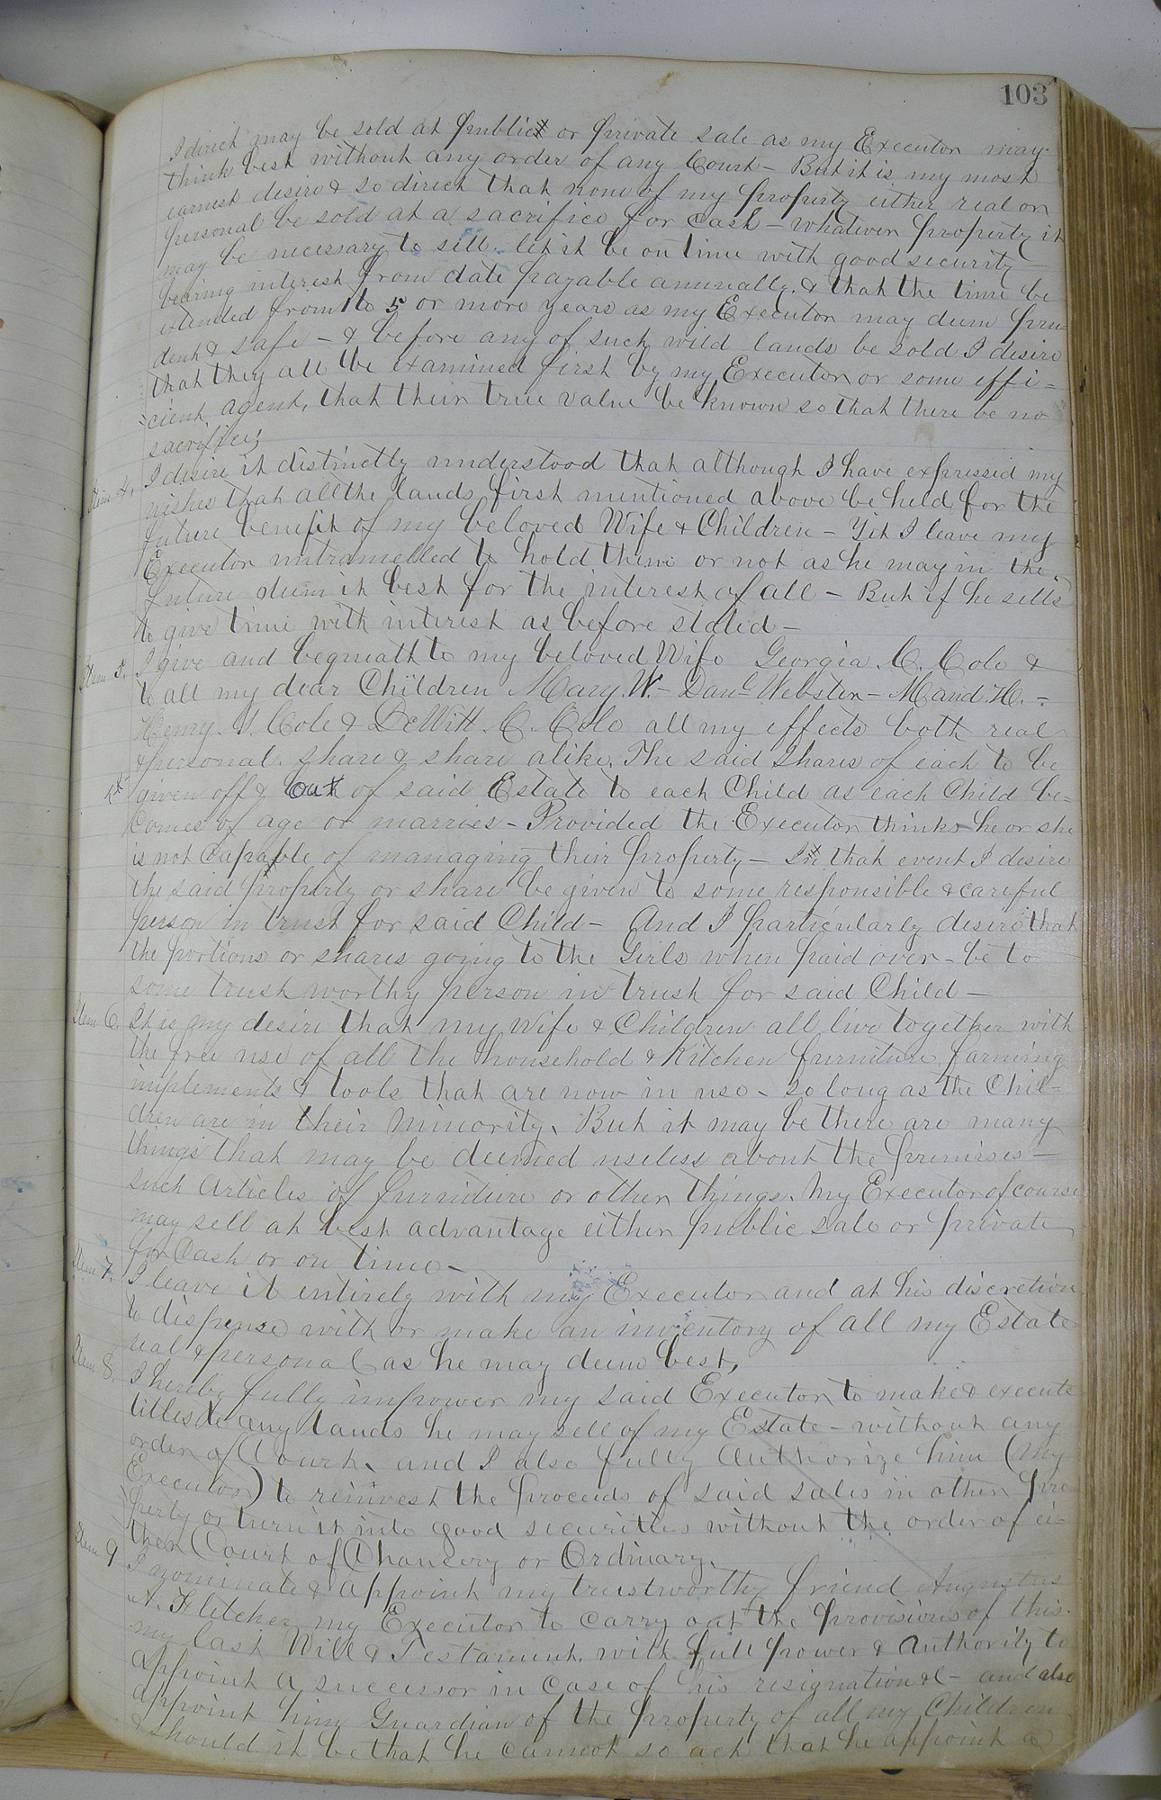 103
I direct may be sold at public or private sale as my Executor may
think best without any order of any Court – But it is my most
earnest desire & so direct that none of my property either real or
personal be sold at a sacrifice for cash – whatever property it
may be necessary to sell, let it be on time with good security
bearing interest from date payable annually. & that the time be
extended from 1 to 5 or more years as my Executor may deem pru
dent & safe – & before any of such wild lands be sold I desire
that they all be examined first by my Executor or some effi=
cient agent, that their true value be known so that there be no
sacrifice;
Item 4. I desire it distinctly understood that although I have expressed my
wishes that all the lands first mentioned above be held for the
future benefit of my beloved Wife & Children – Yet I leave my
Executor untramelled to hold them or not as he may in the
future deem it best for the interest of all – But if he sells
to give time with interest as before stated –
Item 5. I give and bequeath to my beloved Wife Georgia C. Cole &
to all my dear Children Mary. W – Danl Webster – M and. H. =
Henry. Cole & DeWitt. C. Cole all my effects both real
& personal. share & share alike. The said shares of each to be
given off & out of said Estate to each Child as each Child be=
comes of age or marries – Provided the Executor thinks he or she
is not capable of managing their property – In that event I desire
the said property or share be given to some responsible & careful
person in trust for said Child – And I particularly desire that
the portions or shares going to the Girls when paid over – be to
some trust worthy person in trust for said Child –
Item 6. It is my desire that my Wife & Children all live together with
the free use of all the household & Kitchen furniture, farming
implements & tools that are now in use – so long as the Chil=
dren are in their Minority. But it may be there are many
things that may be deemed useless about the premises –
such articles of furniture or other things. My Executor of course
may sell at best advantage either public sale or private
for Cash or on time –
Item 7. I leave it entirely with my Executor and at his discretion
to dispense with or make an inventory of all my Estate
real & personal as he may deem best,
Item 8. I hereby fully impower my said Executor to make & execute
titles to any lands he may sell of my Estate – without any
order of Court, and I also fully Authorize him (My
Executor) to reinvest the proceeds of said sales in other pro
perty or turn it into good securities without the order of ei=
ther Court of Chancery or Ordinary.
Item 9 I nominate & appoint my trustworthy friend Augustus
A. Fletcher my Executor to carry out the provisions of this
my last Will & Testament, with full power & Authority to
appoint a successor in case of his resignation &c – and also
appoint him Guardian of the property of all my Children
& should it be that he cannot so act that he appoint a